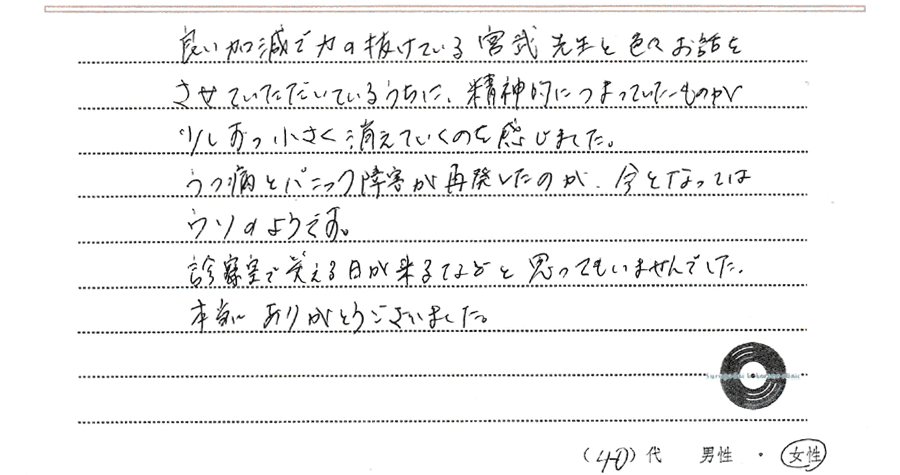 良い加減で力の抜けている宮武先生と色々お話を
させていただいているうちに、精神的につまっていたものが
少しずつ小さく消えていくのを感じました。
うつ病とパニック障害が再発したのが、今となっては
ウソのようです。
診察室で笑える日が来るなどと思ってもいませんでした。
本当にありがとうございました。
(40)代 男性 ・ 女性